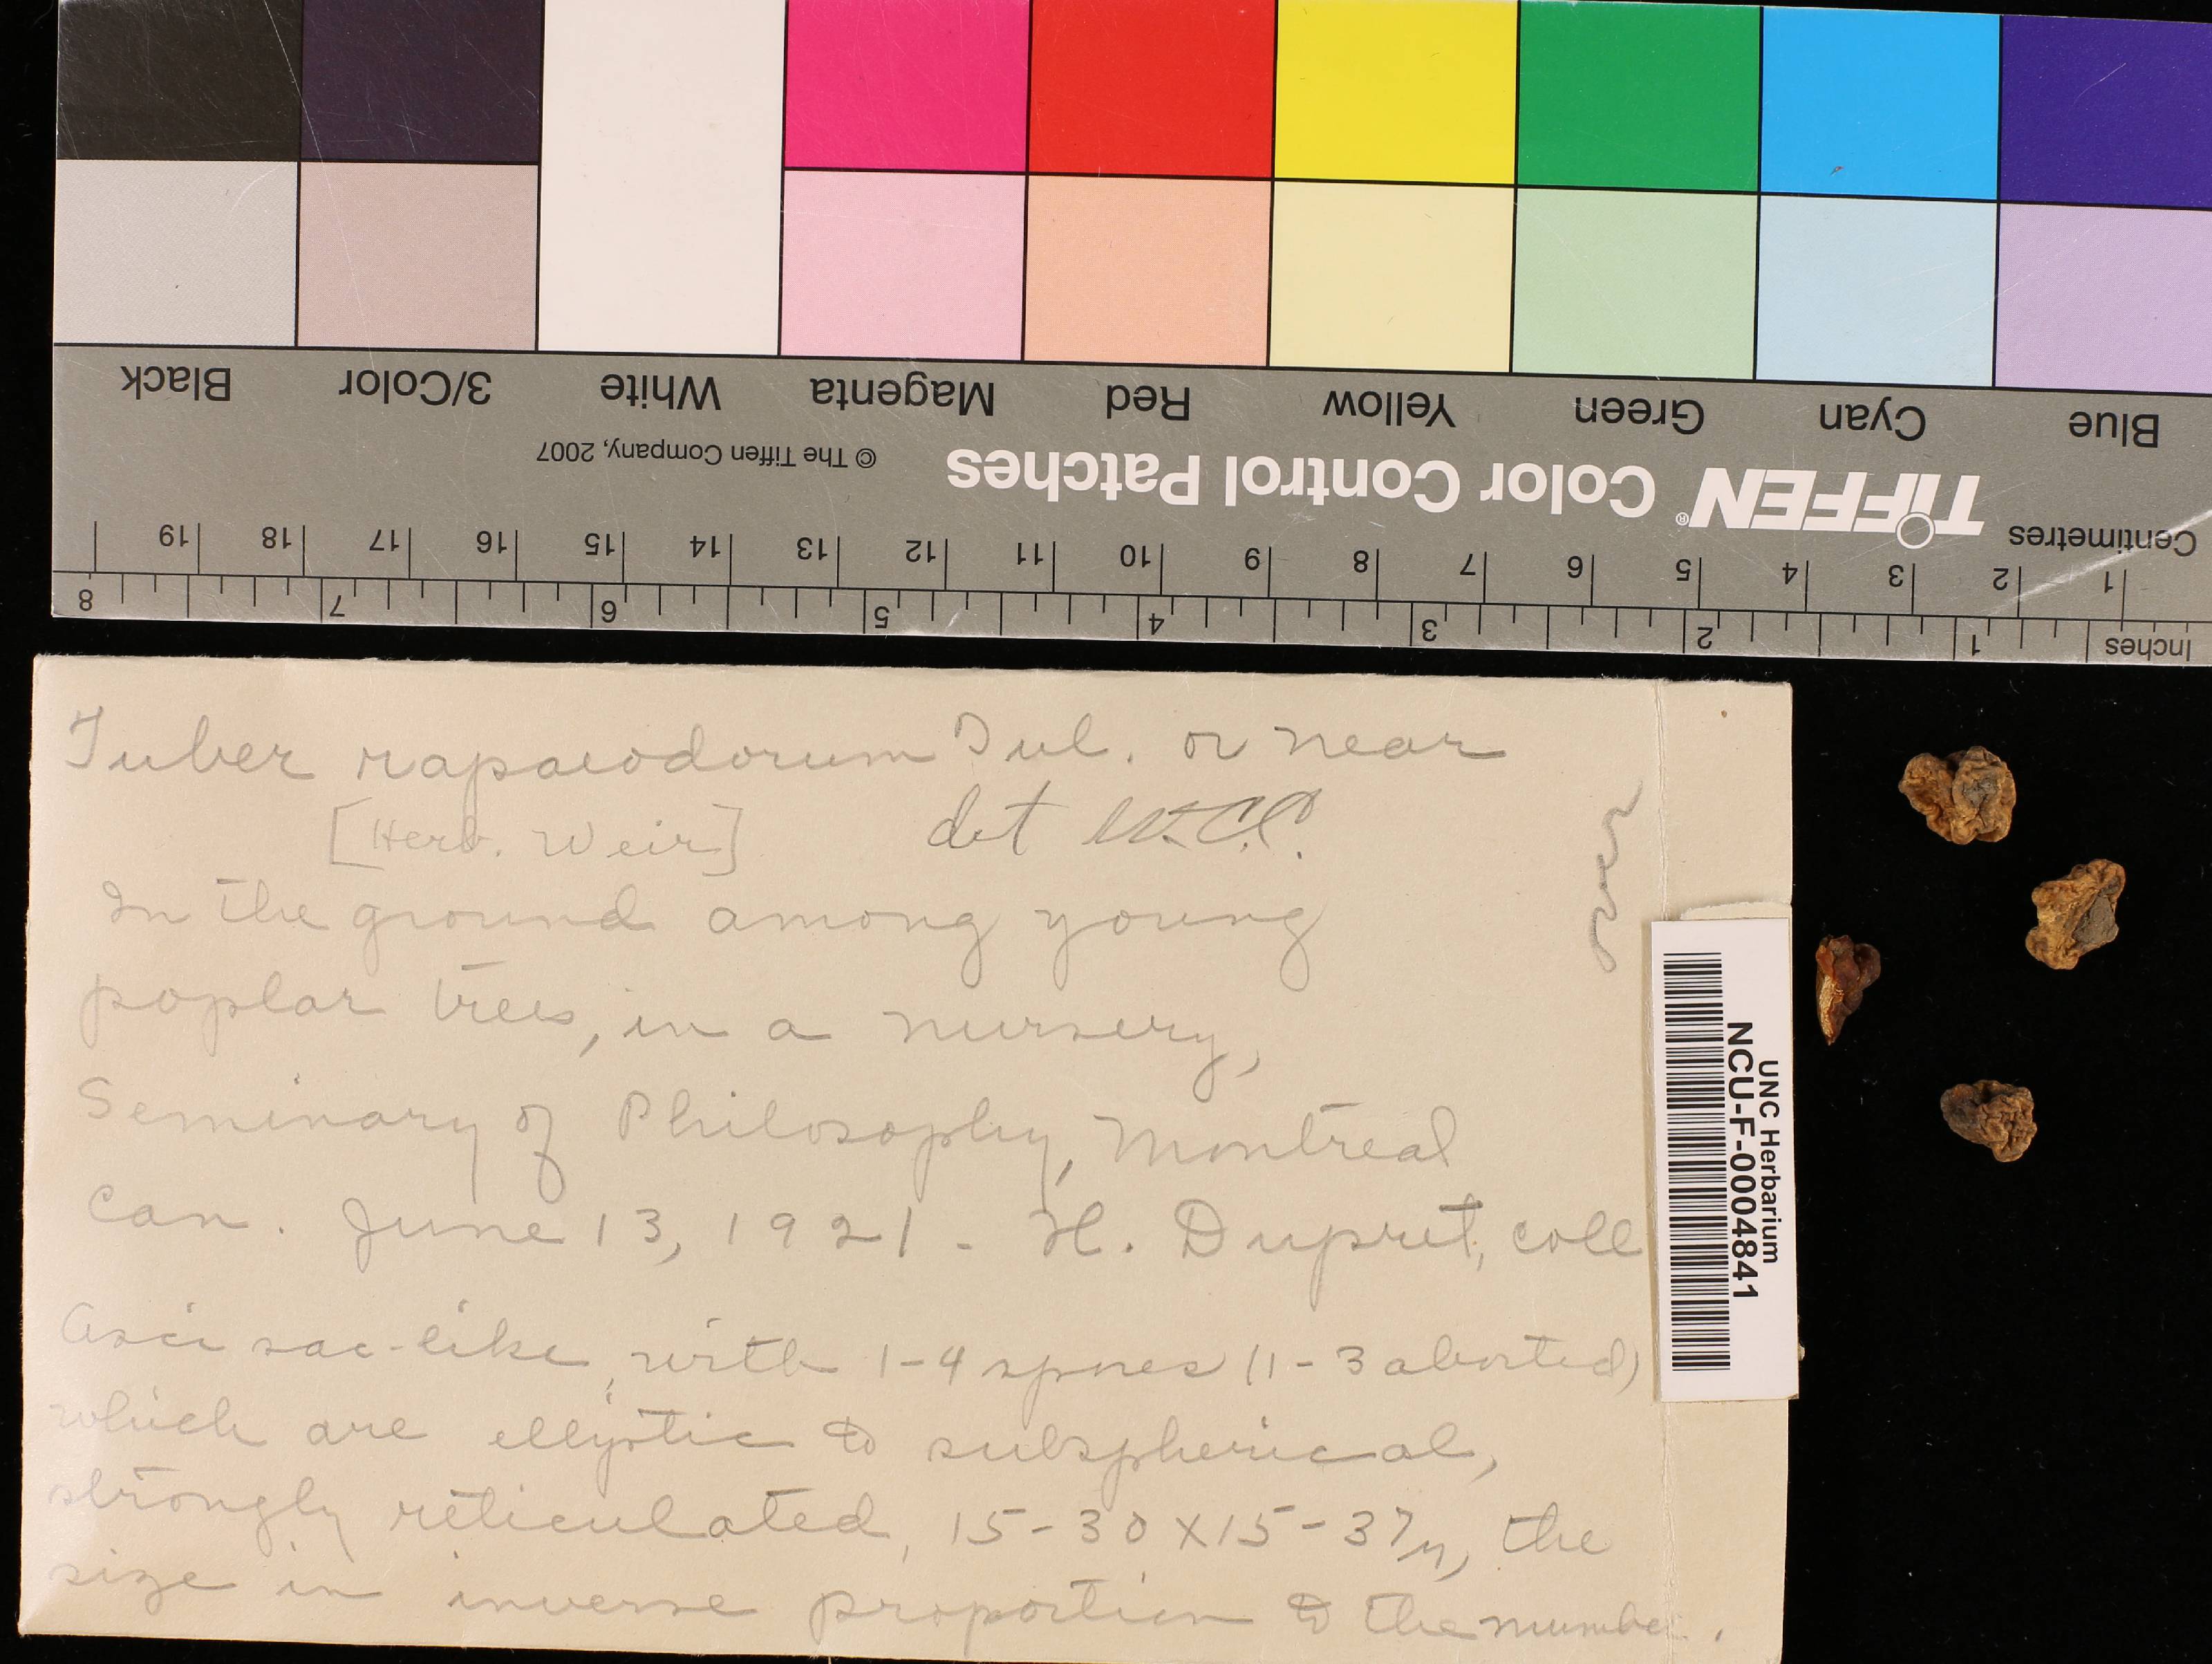 Black 3/Color White Magenta Red Yellow Green Cyan Blue
© The Tiffen Company, 2007
TIFFEN® Color Control Patches
Centimetres
1 2 3 4 5 6 7 8 9 10 11 12 13 14 15 16 17 18 19
Inches 1 2 3 4 5 6 7 8
Tuber rapaeodorum Tul. or near
[Herb. Weir] det W.C.C.
In the ground among young
poplar trees, in a nursery,
Seminary of Philosophy, Montreal
Can. June 13, 1921 - H. Dupret, coll
Asci sac-like, with 1-4 spores (1-3 aborted)
which are elliptic to subspherical,
strongly reticulated, 15-30 x 15-37µ, the
size in inverse proportion to the number.
UNC Herbarium
NCU-F-0004841